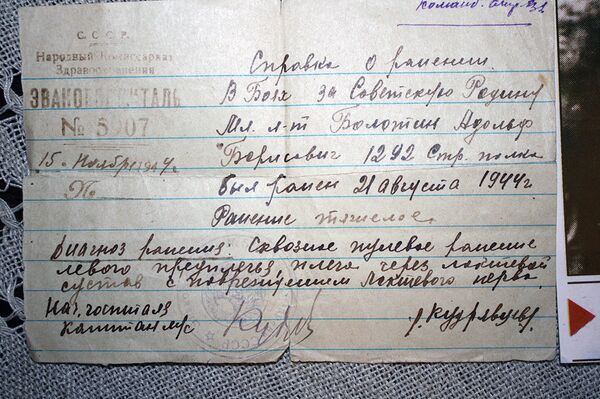 Команд.
С.С.С.Р.
Народный Комиссариат
Здравоохранения
ЭВАКОГОСПИТАЛЬ
№ 5907
15 Ноября 1944г.
№
Справка о ранении.
В Боях за Советскую Родину
Мл. л-т Болотин Адольф
Борисович 1292 Стр. полка
был ранен 21 августа 1944г.
Ранение тяжелое.
Диагноз ранения: Сквозное пулевое ранение
левого предплечья, плеча через локтевой
сустав с повреждением локтевого нерва.
Нач. госпиталя
Капитан м/с
/Кудрявцев/
СССР